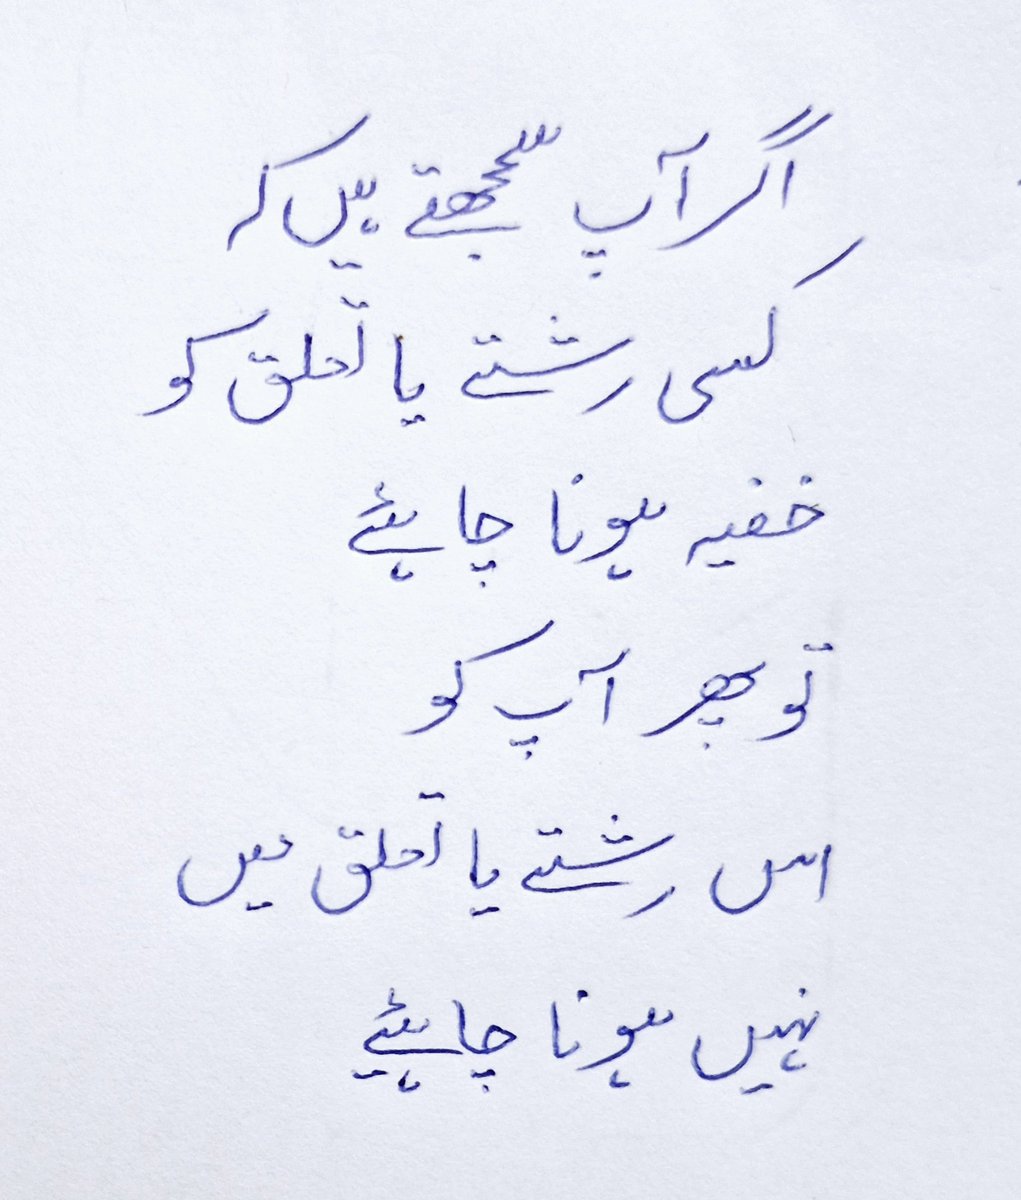 اگر آپ سمجھتے ہیں کہ
کسی رشتے یا تعلق کو
خفیہ ہونا چاہئے
تو پھر آپ کو
اس رشتے یا تعلق میں
نہیں ہونا چاہئیے